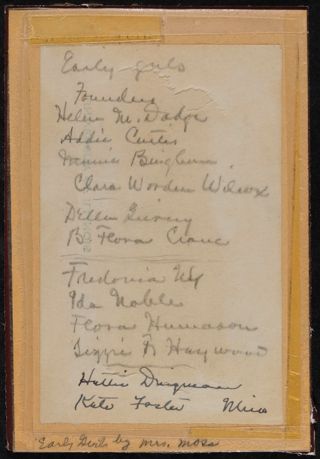 Early girls
Founders
Helen M. Dodge
Addie Curtis
Minnie Bingham
Clara Worden Wilcox
Dellia
B Flora Crane
Fredonia NY
Ida Noble
Flora Humason
Lizzie R Haywood
Hattie Dingman
Kate Foster
"Early Girls by Mrs. Moss